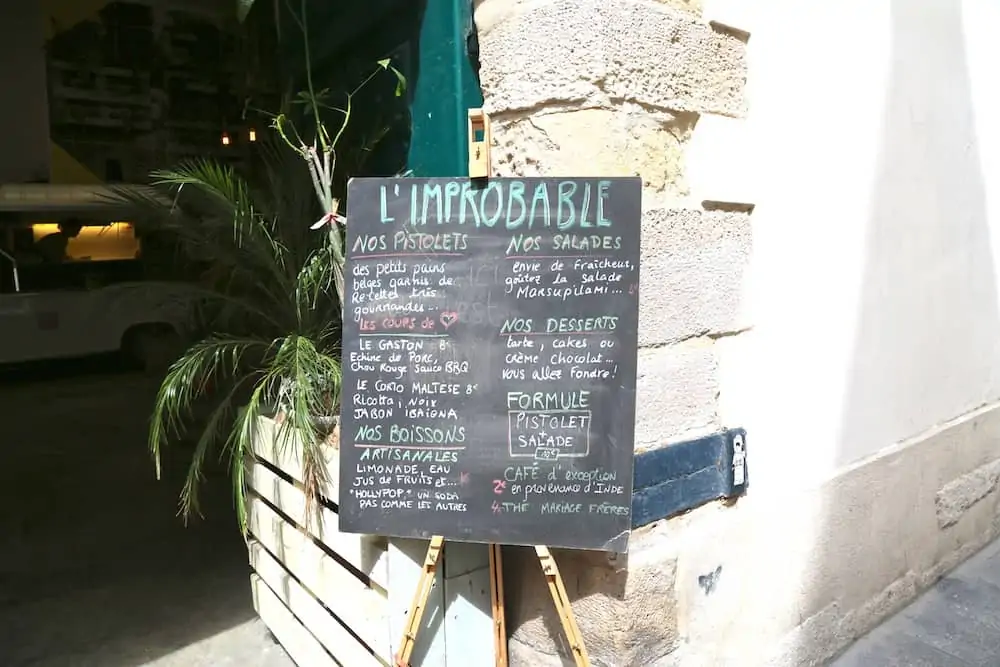 L'IMPROBABLE
NOS PISTOLETS
des petits pains
belges garnis de
Recettes très
gourmandes...
Les coups de
LE GASTON 8€
Echine de Porc,
Chou Rouge Sauce BBQ
LE CORTO MALTESE 8€
Ricotta, Noix
JABON IBAIONA
NOS BOISSONS
ARTISANALES
LIMONADE, EAU
JUS DE FRUITS et...
"HOLLYPOP" UN SODA
PAS COMME LES AUTRES
NOS SALADES
envie de Fraîcheur,
goûtez la Salade
MARSUPILAMI...
NOS DESSERTS
tarte, cakes ou
CRÈME CHOCOLAT...
VOUS ALLEZ FONDRE!
FORMULE
PISTOLET
+
SALADE
CAFÉ d'exception
2€ en provenance d'INDE
4€ THÉ MARIAGE FRÈRES